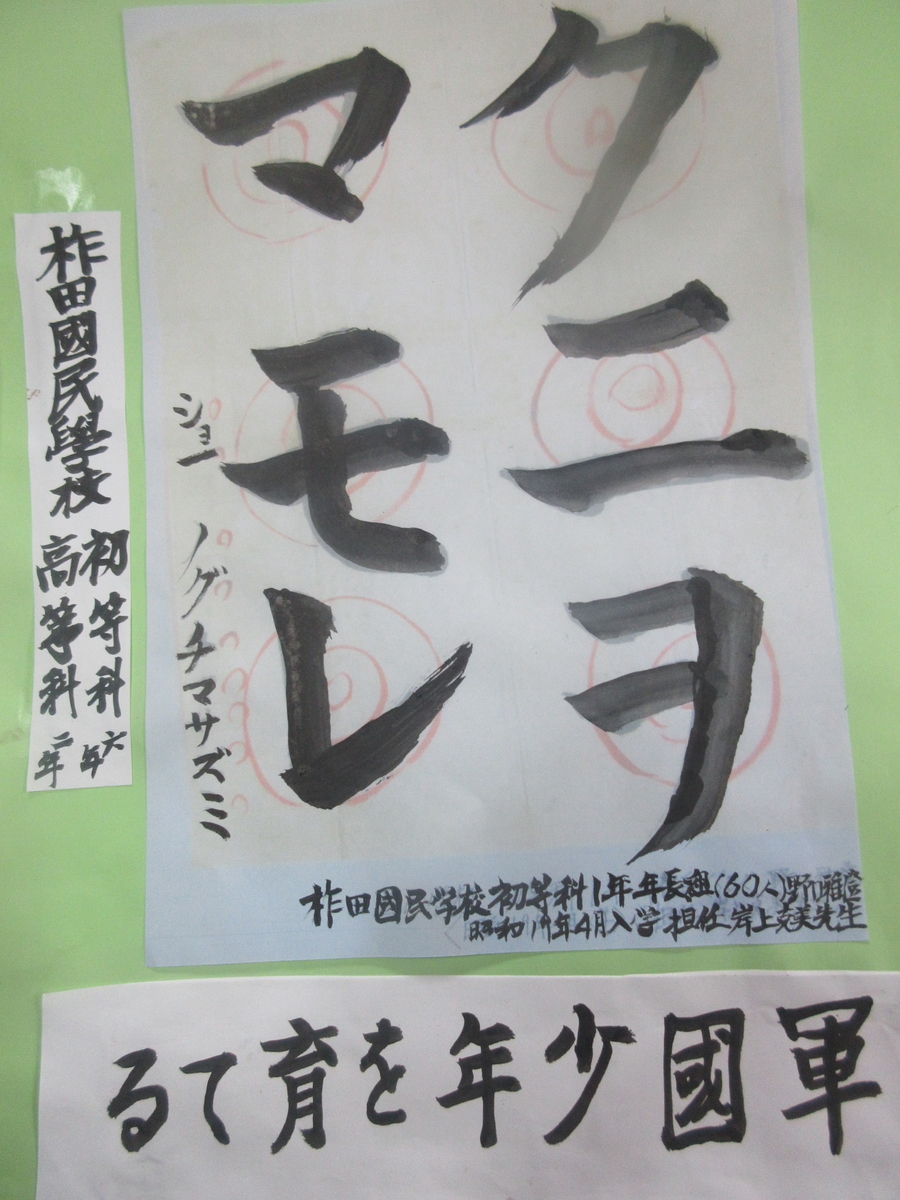 クニヲ
マモレ
ショー ノグチマサズミ
柞田國民學校
初等科六年
高等科二年
柞田國民学校初等科1年年長組(60人)野口雅澄
昭和17年4月入学担任岸上克美先生
軍國少年を育てる